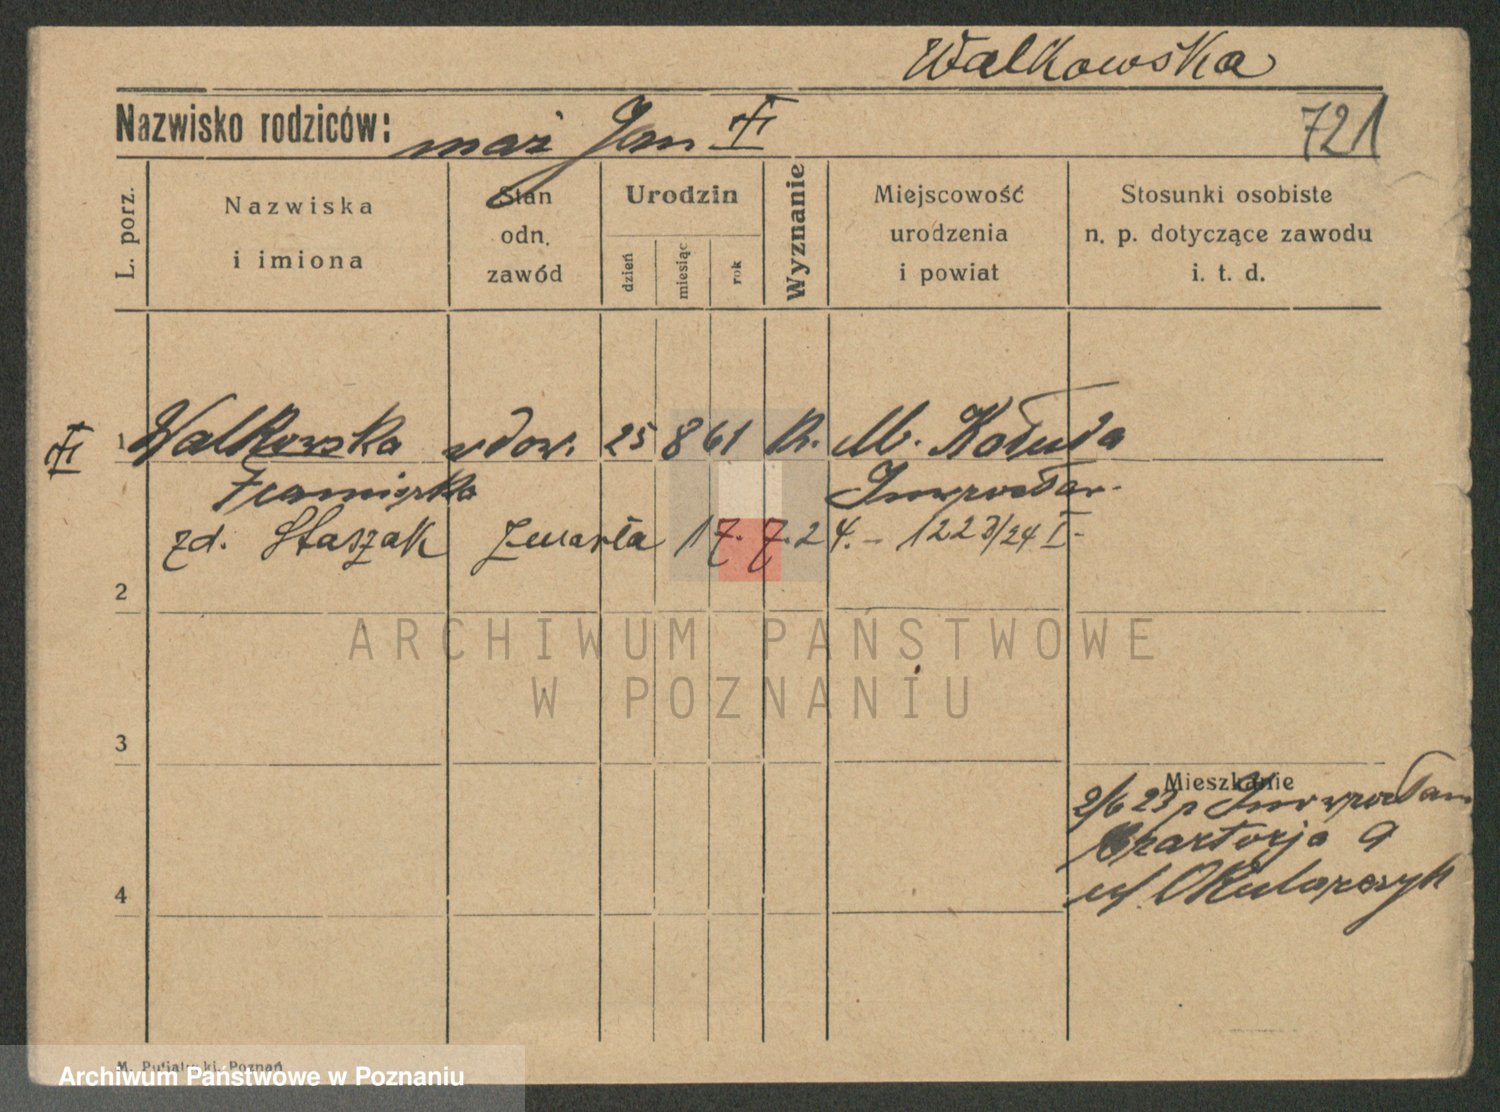 Walkowska
Nazwisko rodziców: mąż Jan
721
L. porz.
Nazwiska
i imiona
Stan
odn.
zawód
Urodzin
dzień
miesiąc
rok
Wyznanie
Miejscowość
urodzenia
i powiat
Stosunki osobiste
n. p. dotyczące zawodu
i. t. d.
1 Walkowska wdow. 25 8 61 R. M. Kołuda
Franciszka Inowrocław.
zd. Staszak zmarła 17.7.24. - 1223/24 I.
2
3
4
Mieszkanie
2/6 23 z Inowrocławia
Czartorja 9
u/. Okularczyk
M. Putiatycki, Poznań
ARCHIWUM PAŃSTWOWE
W POZNANIU
Archiwum Państwowe w Poznaniu